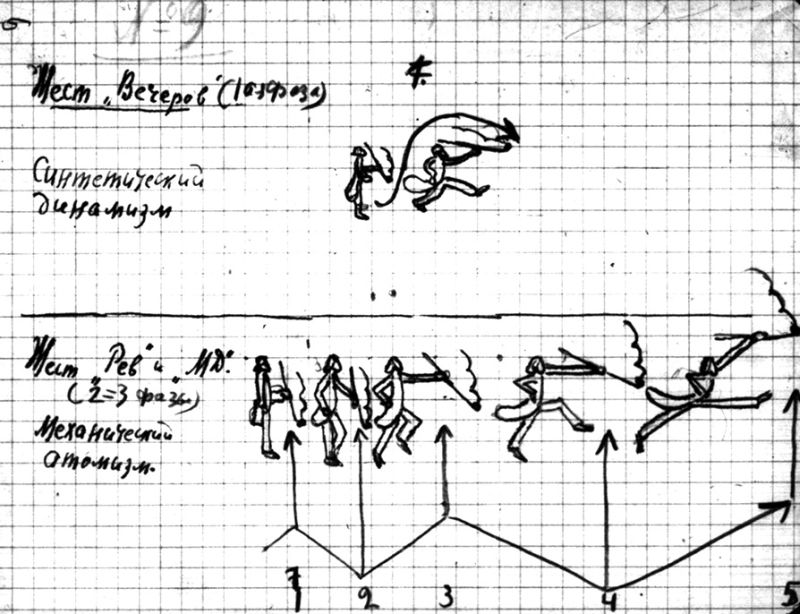 № 9
Жест „Вечеров" (1 аяфаза)
4.
Синтетический
динамизм
Жест „Рев" и „МД".
(2=3 фазы)
Механический
атомизм.
1 2 3 4 5